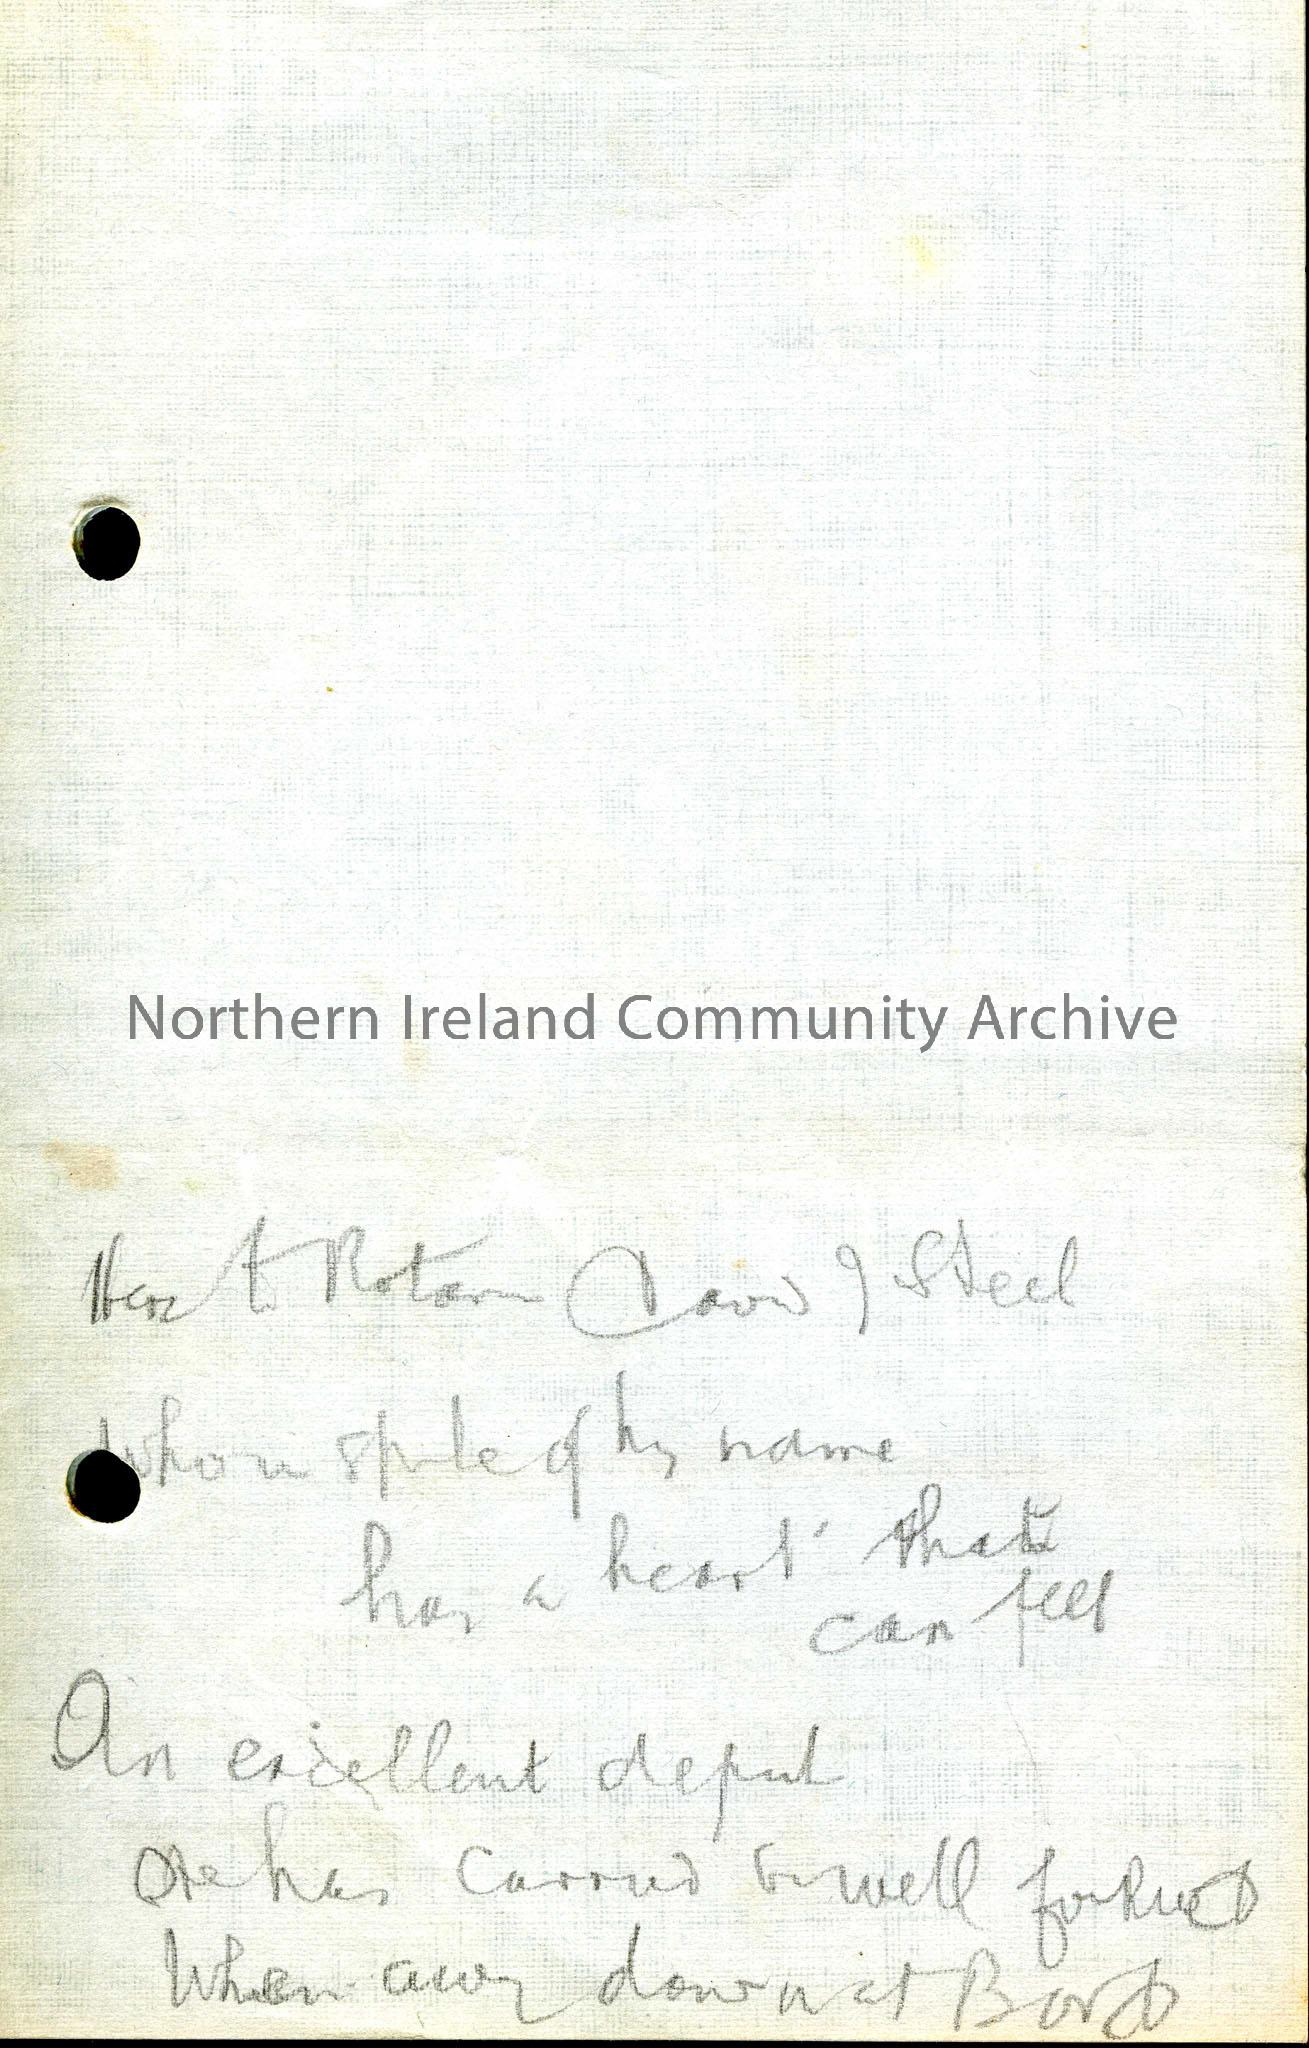 Northern Ireland Community Archive
Here to Rotary David J Steel
who in spite of his name
has a heart that
can feel
An excellent deput
He has carried well for
When away down at